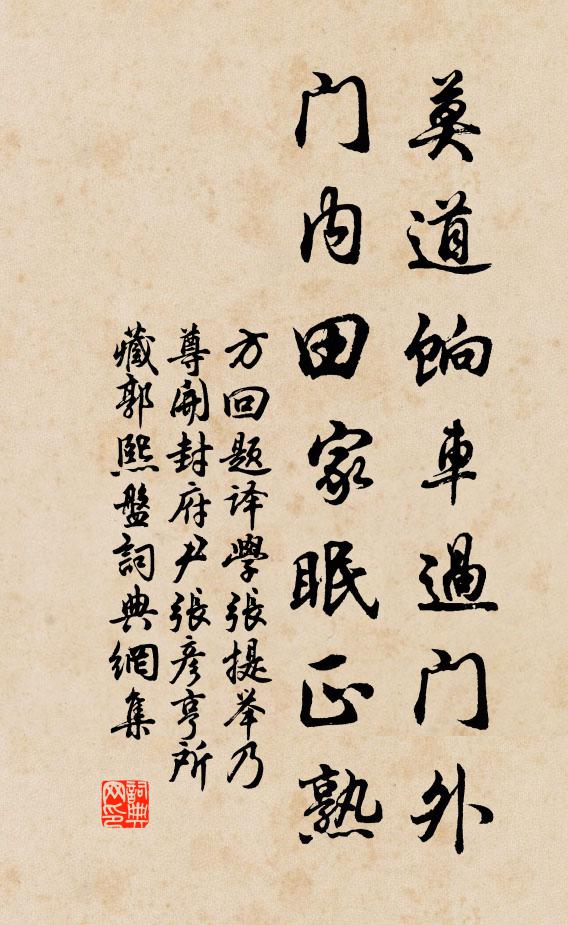 莫道餉車過门外
门内田家眠正熟
方回题译學張提举乃
尊開封府尹張彦亨所
藏郭熙盤詞典網集
詞典网印